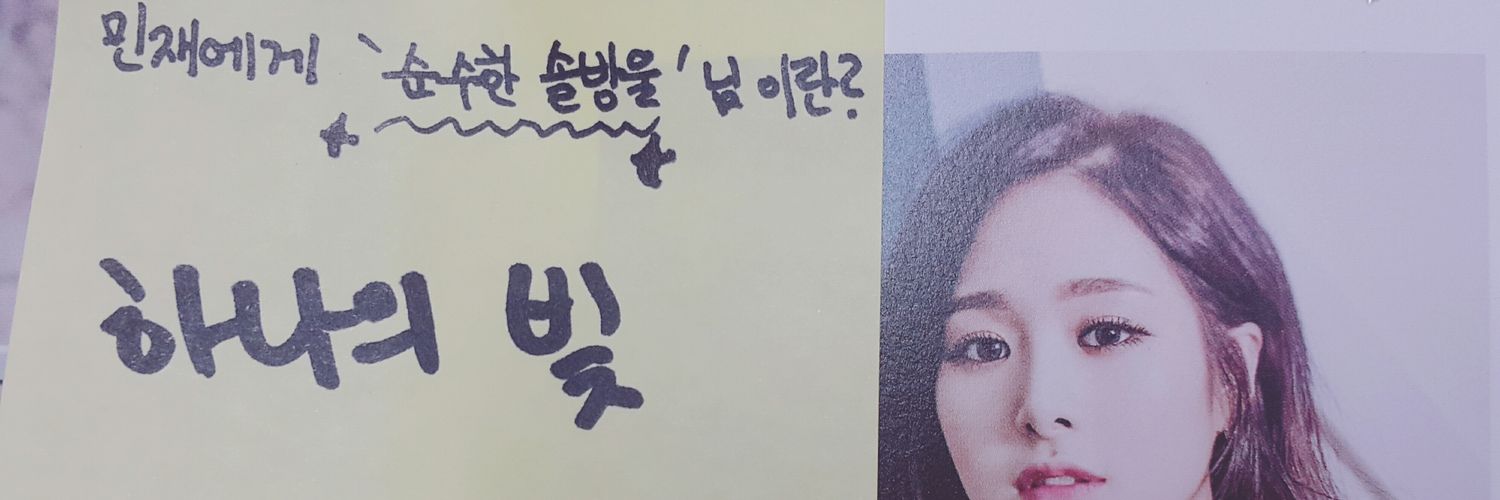 민재에게 '순수한 솔방울'님 이란?
하나의 빛